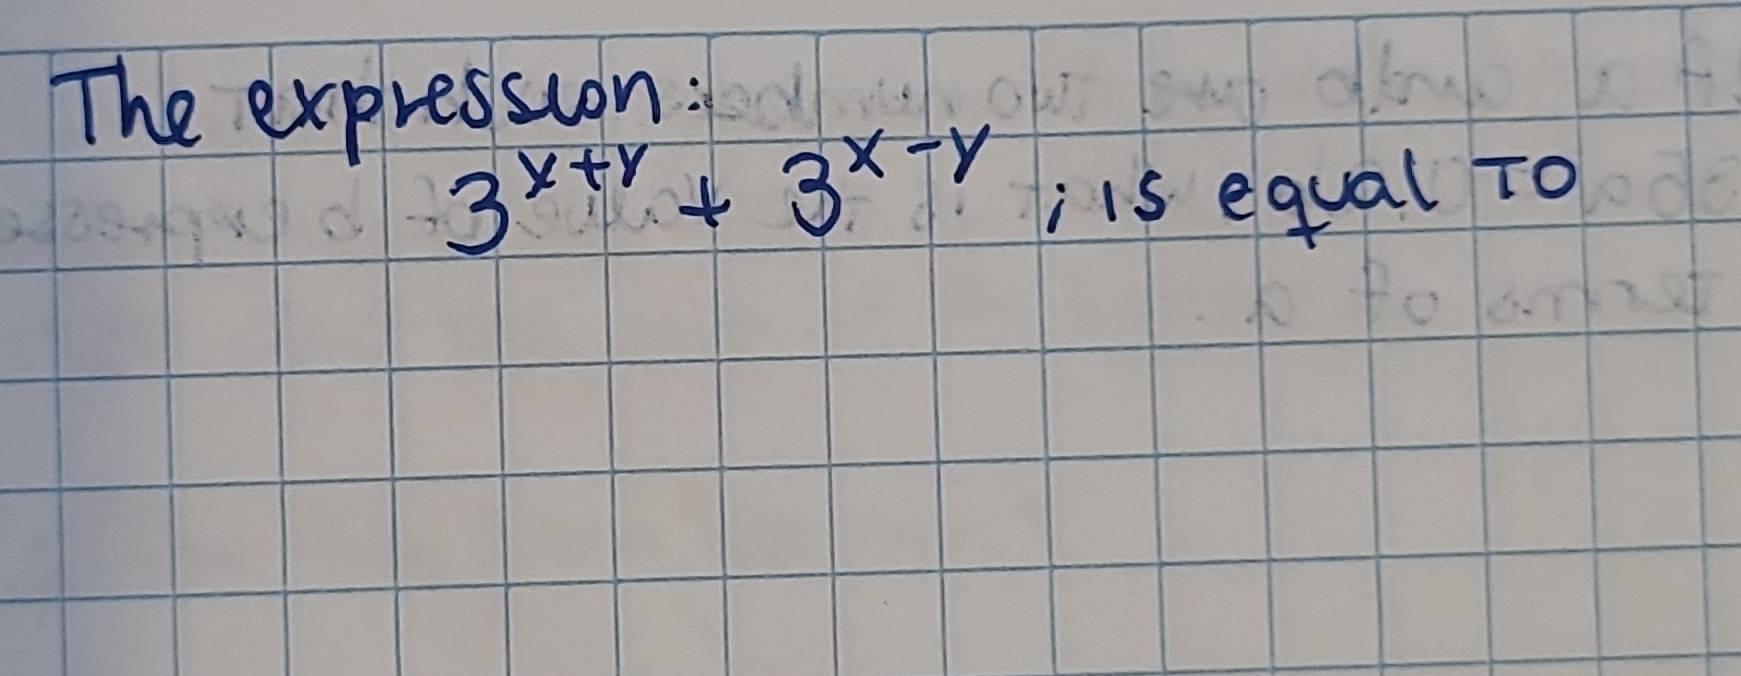 The expression:
3^{x+y} + 3^{x-y} ; is equal TO